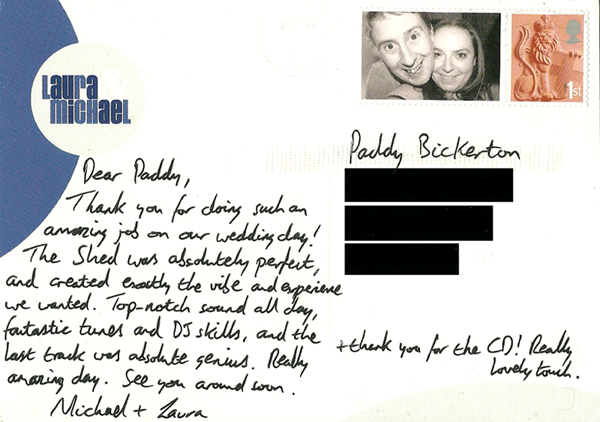 Laura
Michael
1st
Dear Paddy,
Thank you for doing such an
amazing job on our wedding day!
The Shed was absolutely perfect,
and created exactly the vibe and experience
we wanted. Top-notch sound all day,
fantastic tunes and DJ skills, and the
last track was absolute genius. Really
amazing day. See you around soon.
Michael + Laura
Paddy Bickerton
+thank you for the CD! Really
Lovely touch.